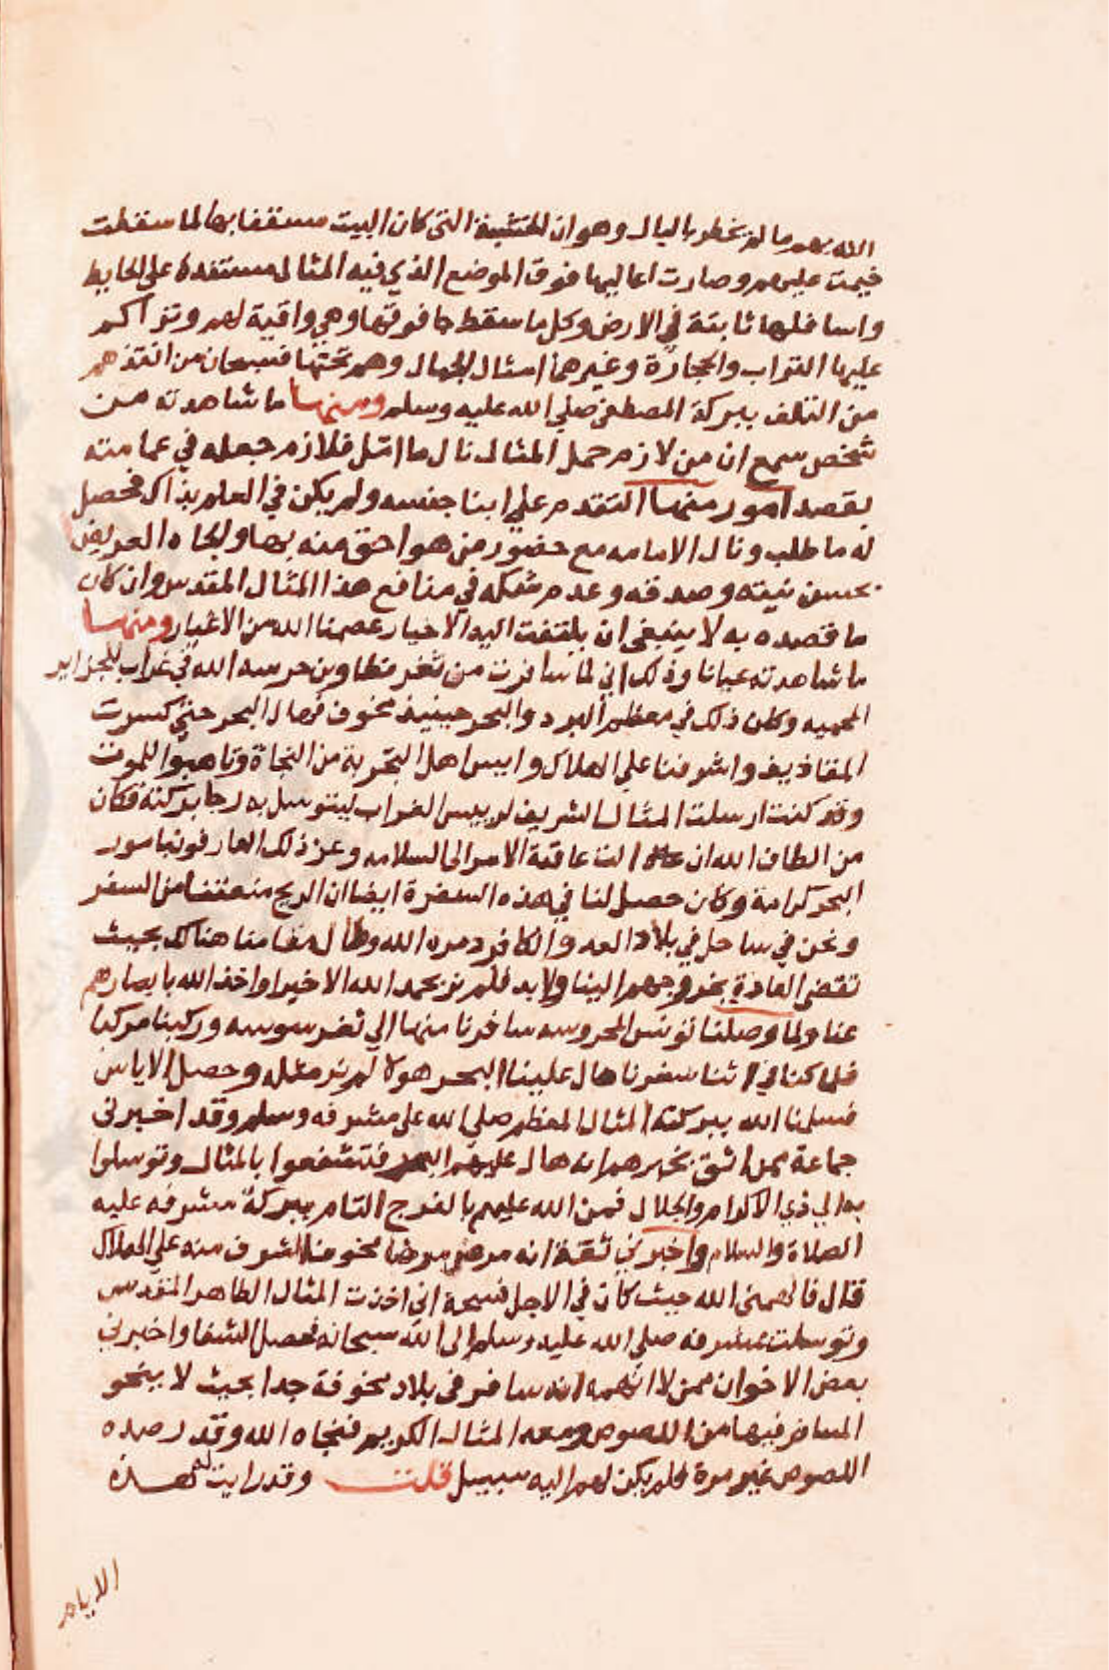 الله بهم ما لم يخطر بالبال وهو ان الخشبة التي كان البيت مسقفا بها لما سقطت
خيمت عليهم وصارت اعاليها فوق الموضع الذي فيه المثال مستندة على الحايط
واسافلها ثابتة في الارض وكل ما سقط جا فوقها وهي واقية لهم وتراكم
عليها التراب والحجارة وغيرهما امثال الجبال وهم تحتها فسبحان من انقذهم
من التلف ببركة المصطفى صلي الله عليه وسلم ومنها ما شاهدته من
شخص سمع ان من لازم حمل المثال نال ما امل فلازم جعله في عمامته
بقصد امور منها التقدم علي ابنا جنسه ولم يكن في العلم بذاك فحصل
له ما طلب ونال الامامه مع حضور من هو احق منه بها والجاه العريض
بحسن نيته وصدقه وعدم شكه في منافع هذا المثال المقدس وان كان
ما قصده به لا ينبغي ان يلتفت اليه الاخيار عصمنا الله من الاغيار ومنها
ما شاهدته عيانا وذلك اني لما سافرت من ثغر تطاوين حرسه الله في غراب للجزاير
المحميه وكان ذلك في معظم البرد والبحر حينيذ مخوف فهال البحر حتي كسرت
المقاذيف واشرفنا علي الهلاك وايس اهل التجربة من النجاة وتاهبوا للموت
وقد كنت ارسلت المثال الشريف لرييس الغراب ليتوسل به رجا بركته فكان
من الطاف الله ان الت عاقبة الامر الى السلامه وعد ذلك العارفون بامور
البحر كرامة وكان حصل لنا في هذه السفرة ايضا ان الريح منعتنا من السفر
ونحن في ساحل في بلاد العدو الكافر دمره الله وطال مقامنا هناك بحيث
تقضي العادة بخروجهم الينا ولا بد فلم نر بحمد الله الا خيرا واخذ الله بابصارهم
عنا ولما وصلنا تونس المحروسه سافرنا منها الي ثغر سوسه وركبنا مركبا
فلما كنا في اثنا سفرنا هال علينا البحر هولا لم نر مثله وحصل الاياس
فسلمنا الله ببركة المثال المعظم صلي الله على مشرفه وسلم وقد اخبرني
جماعة ممن اثق بخبرهم انه هال عليهم البحر فتشفعوا بالمثال وتوسلوا
به الي ذي الاكرام والجلال فمن الله عليهم بالفرج التام ببركة مشرفه عليه
الصلاة والسلام واخبرني ثقة انه مرض مرضا مخوفا اشرف منه علي الهلاك
قال فالهمني الله حيث كان في الاجل فسحة اني اخذت المثال الطاهر المقدس
وتوسلت بمشرفه صلي الله عليه وسلم الى الله سبحانه فحصل الشفا واخبرني
بعض الاخوان ممن لا اتهمه انه سافر في بلاد مخوفة جدا بحيث لا ينجو
المسافر فيها من اللصوص ومعه المثال الكريم فنجاه الله وقد رصده
اللصوص غير مرة فلم يكن لهم اليه سبيل قلت وقد رايت له هذه
الايام